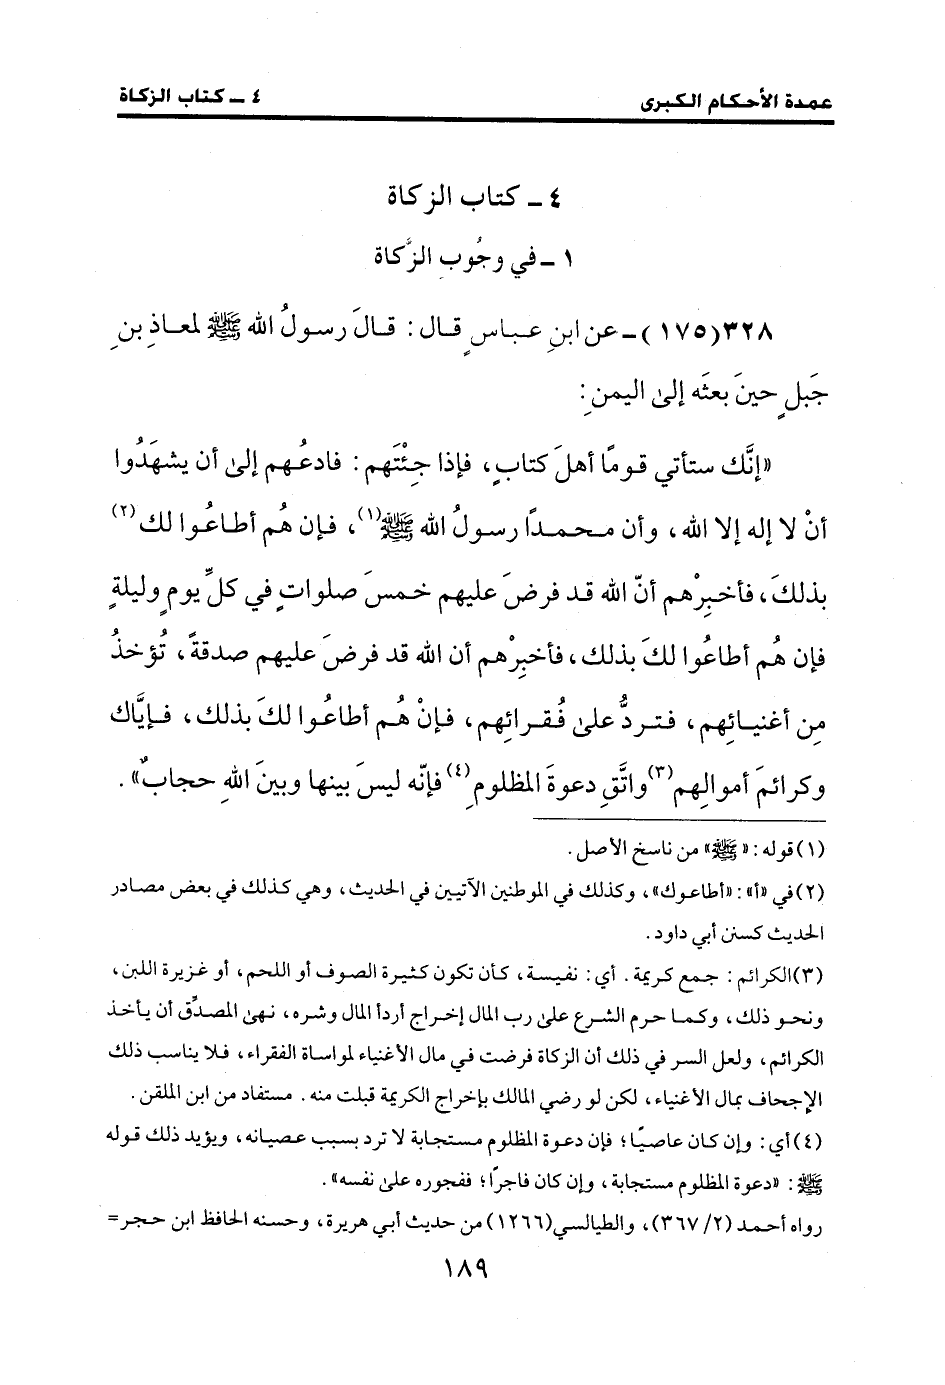 عمدة الأحكام الكبرى ٤ ــ كتاب الزكاة
٤ ــ كتاب الزكاة
١ ــ في وجُوبِ الزَّكاة
٣٢٨(١٧٥) ــ عن ابنِ عباسٍ قال: قالَ رسولُ الله ﷺ لمعاذِ بنِ
جَبلٍ حينَ بعثَه إلى اليمنِ:
«إنَّك ستأتي قومًا أهلَ كتابٍ، فإذا جِئْتَهم: فادعُهم إلى أن يشهَدُوا
أنْ لا إله إلا الله، وأن محمدًا رسولُ الله ﷺ(١)، فإن هُم أطاعُوا لك(٢)
بذلكَ، فأخبِرْهم أنّ الله قد فرضَ عليهم خمسَ صلواتٍ في كلِّ يومٍ وليلةٍ
فإن هُم أطاعُوا لكَ بذلك، فأخبِرْهم أن الله قد فرضَ عليهم صدقةً، تُؤخذُ
مِن أغنيائِهم، فتردُّ على فُقرائِهم، فإنْ هُم أطاعُوا لكَ بذلك، فإيَّاك
وكرائمَ أموالِهم(٣) واتَّقِ دعوةَ المظلومِ(٤) فإنّه ليسَ بينها وبينَ اللهِ حجابٌ».
(١) قوله: «ﷺ» من ناسخ الأصل.
(٢) في «أ»: «أطاعوك»، وكذلك في الموطنين الآتيين في الحديث، وهي كذلك في بعض مصادر
الحديث كسنن أبي داود.
(٣) الكرائم: جمع كريمة. أي: نفيسة، كأن تكون كثيرة الصوف أو اللحم، أو غزيرة اللبن،
ونحو ذلك، وكما حرم الشرع على رب المال إخراج أردأ المال وشره، نهى المصدِّق أن يأخذ
الكرائم، ولعل السر في ذلك أن الزكاة فرضت في مال الأغنياء لمواساة الفقراء، فلا يناسب ذلك
الإجحاف بمال الأغنياء، لكن لو رضي المالك بإخراج الكريمة قبلت منه. مستفاد من ابن الملقن.
(٤) أي: وإن كان عاصيًا؛ فإن دعوة المظلوم مستجابة لا ترد بسبب عصيانه، ويؤيد ذلك قوله
ﷺ: «دعوة المظلوم مستجابة، وإن كان فاجرًا؛ ففجوره على نفسه».
رواه أحمد (٢/ ٣٦٧)، والطيالسي (١٢٦٦) من حديث أبي هريرة، وحسنه الحافظ ابن حجر=
١٨٩